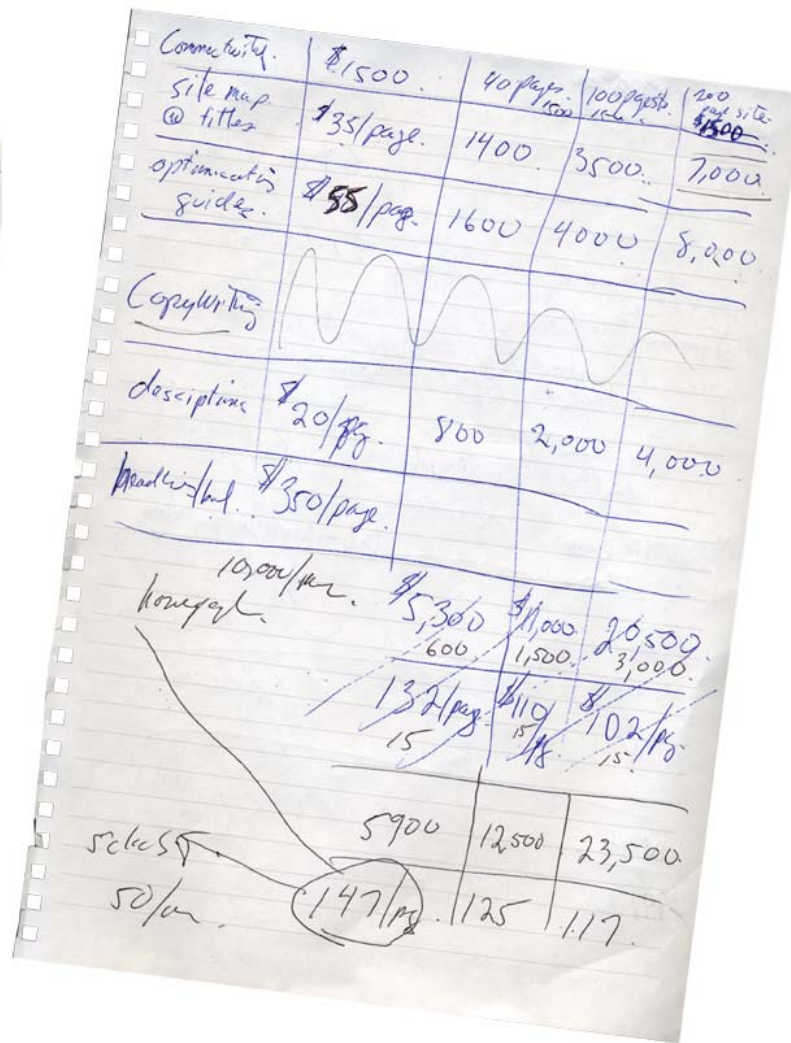 $1500. 40 pages. 1500 100 pgsite. 200 page site. $1500
site map @ titles $35/page. 1400 3500. 7,000
guides. $55/pag. 1600 4000 8,000
CopyWriting
descriptions $20/pg. 800 2,000 4,000
$350/page.
10,000/
homepage. $5,300 $11,000 20,500
600 1,500. 3,000
132/pag. $110/pg $102/pg
15 15 15.
5900 12,500 23,500
50/
147/pg. 125 117.